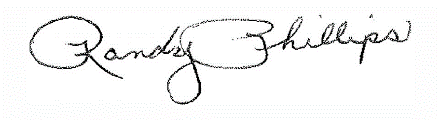 Randy Phillips